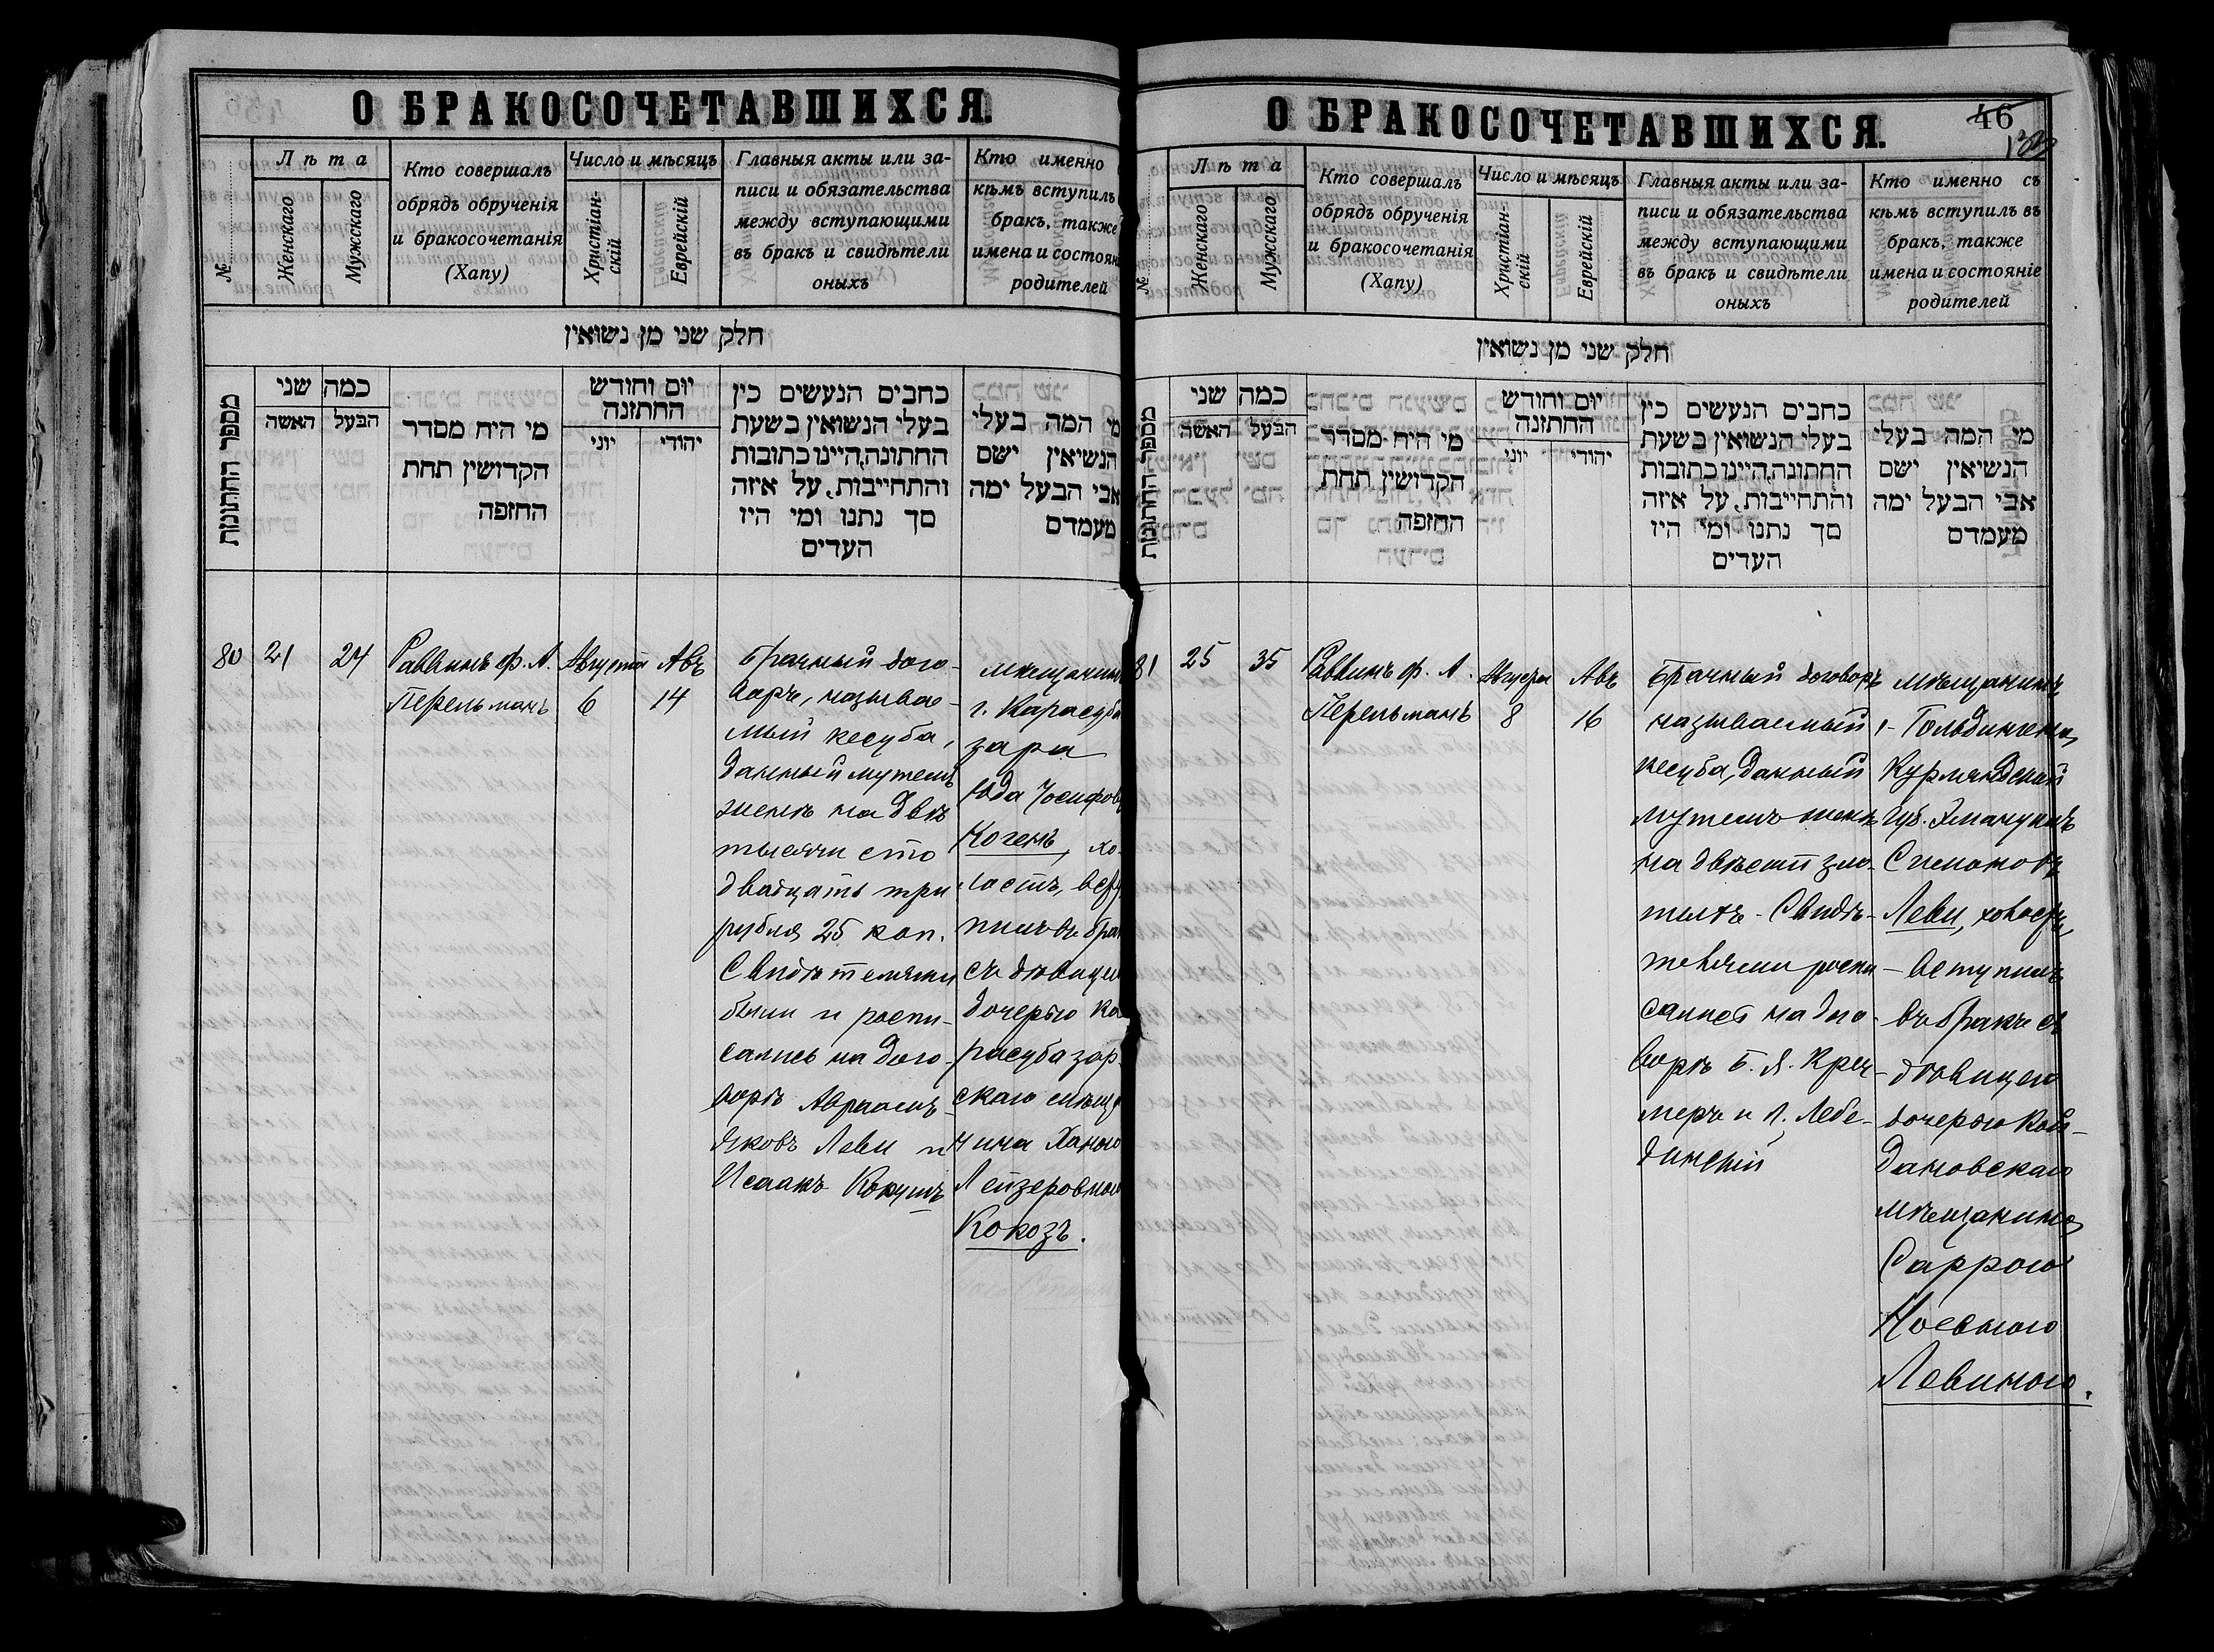 О БРАКОСОЧЕТАВШИХСЯ.
№
Лѣта
Женскаго
Мужскаго
Кто совершалъ
обрядъ обрученія
и бракосочетанія
(Хапу)
Число и мѣсяцъ
Христіан-
скій
Еврейскій
Главныя акты или за-
писи и обязательства
между вступающими
въ бракъ и свидѣтели
оныхъ
Кто именно
кѣмъ вступилъ
бракъ, также
имена и состоян
родителей
חלק שני מן נשואין
מספר החתונות
כמה שני
האשה
הבעל
מי היח מסדר
הקדושין תחת
החזפה
יום וחודש
החתזנה
יוני
יהודי
כחבים הנעשים כין
בעלי הנשואין בשעת
החתונה,היינו כתובות
והתחייבות, על איזה
סך נתנו ומי היז
העדים
מי המה בעלי
הנשיאין ישם
אבי הבעל ימה
מעמדם
80
21
24
Раввинъ ф. А.
Перельманъ
Августа
6
Авъ
14
Брачный дого-
воръ, называе-
мый кесуба,
данный мужемъ
женѣ на двѣ
тысячи сто
двадцать три
рубля 25 коп.
Свидѣтелями
были и роспи-
сались на дого-
ворѣ Авраамъ
Яковъ Леви и
Исаакъ Кокушъ
мѣщанинъ
г. Карасуба
зара
Юда Іосифов
Когенъ, хо-
лостъ, всту
пилъ въ бра
съ дѣвицею
дочерью Ка
расубазар-
скаго мѣща
нина Ханою
Лейзеровною
Кокозъ.
О БРАКОСОЧЕТАВШИХСЯ.
46
№
Лѣта
Женскаго
Мужскаго
Кто совершалъ
обрядъ обрученія
и бракосочетанія
(Хапу)
Число и мѣсяцъ
Христіан-
скій
Еврейскій
Главныя акты или за-
писи и обязательства
между вступающими
въ бракъ и свидѣтели
оныхъ
Кто именно съ
кѣмъ вступилъ въ
бракъ, также
имена и состояніе
родителей
חלק שני מן נשואין
מספר החתונות
כמה שני
האשה
הבעל
מי היח מסדר
הקדושין תחת
החזפה
יום וחודש
החתזנה
יוני
יהודי
כחבים הנעשים כין
בעלי הנשואין בשעת
החתונה,היינו כתובות
והתחייבות, על איזה
סך נתנו ומי היז
העדים
מי המה בעלי
הנשיאין ישם
אבי הבעל ימה
מעמדם
81
25
35
Раввинъ ф. А.
Перельманъ
Августа
8
Авъ
16
Брачный договоръ
называемый
кесуба, данный
мужемъ женѣ
на двѣсти зло-
тыхъ - Свидѣ-
телями роспи-
сались на дого-
ворѣ Б. Я. Креч-
меръ и Л. Лебе-
динскій
мѣщанинъ
г. Гольдингена,
Курляндской
губ. Эмануилъ
Симоновъ
Леви, холостъ,
- вступилъ
въ бракъ съ
дѣвицею
дочерью Кой-
дановскаго
мѣщанина
Саррою
Ноевною
Левиною.